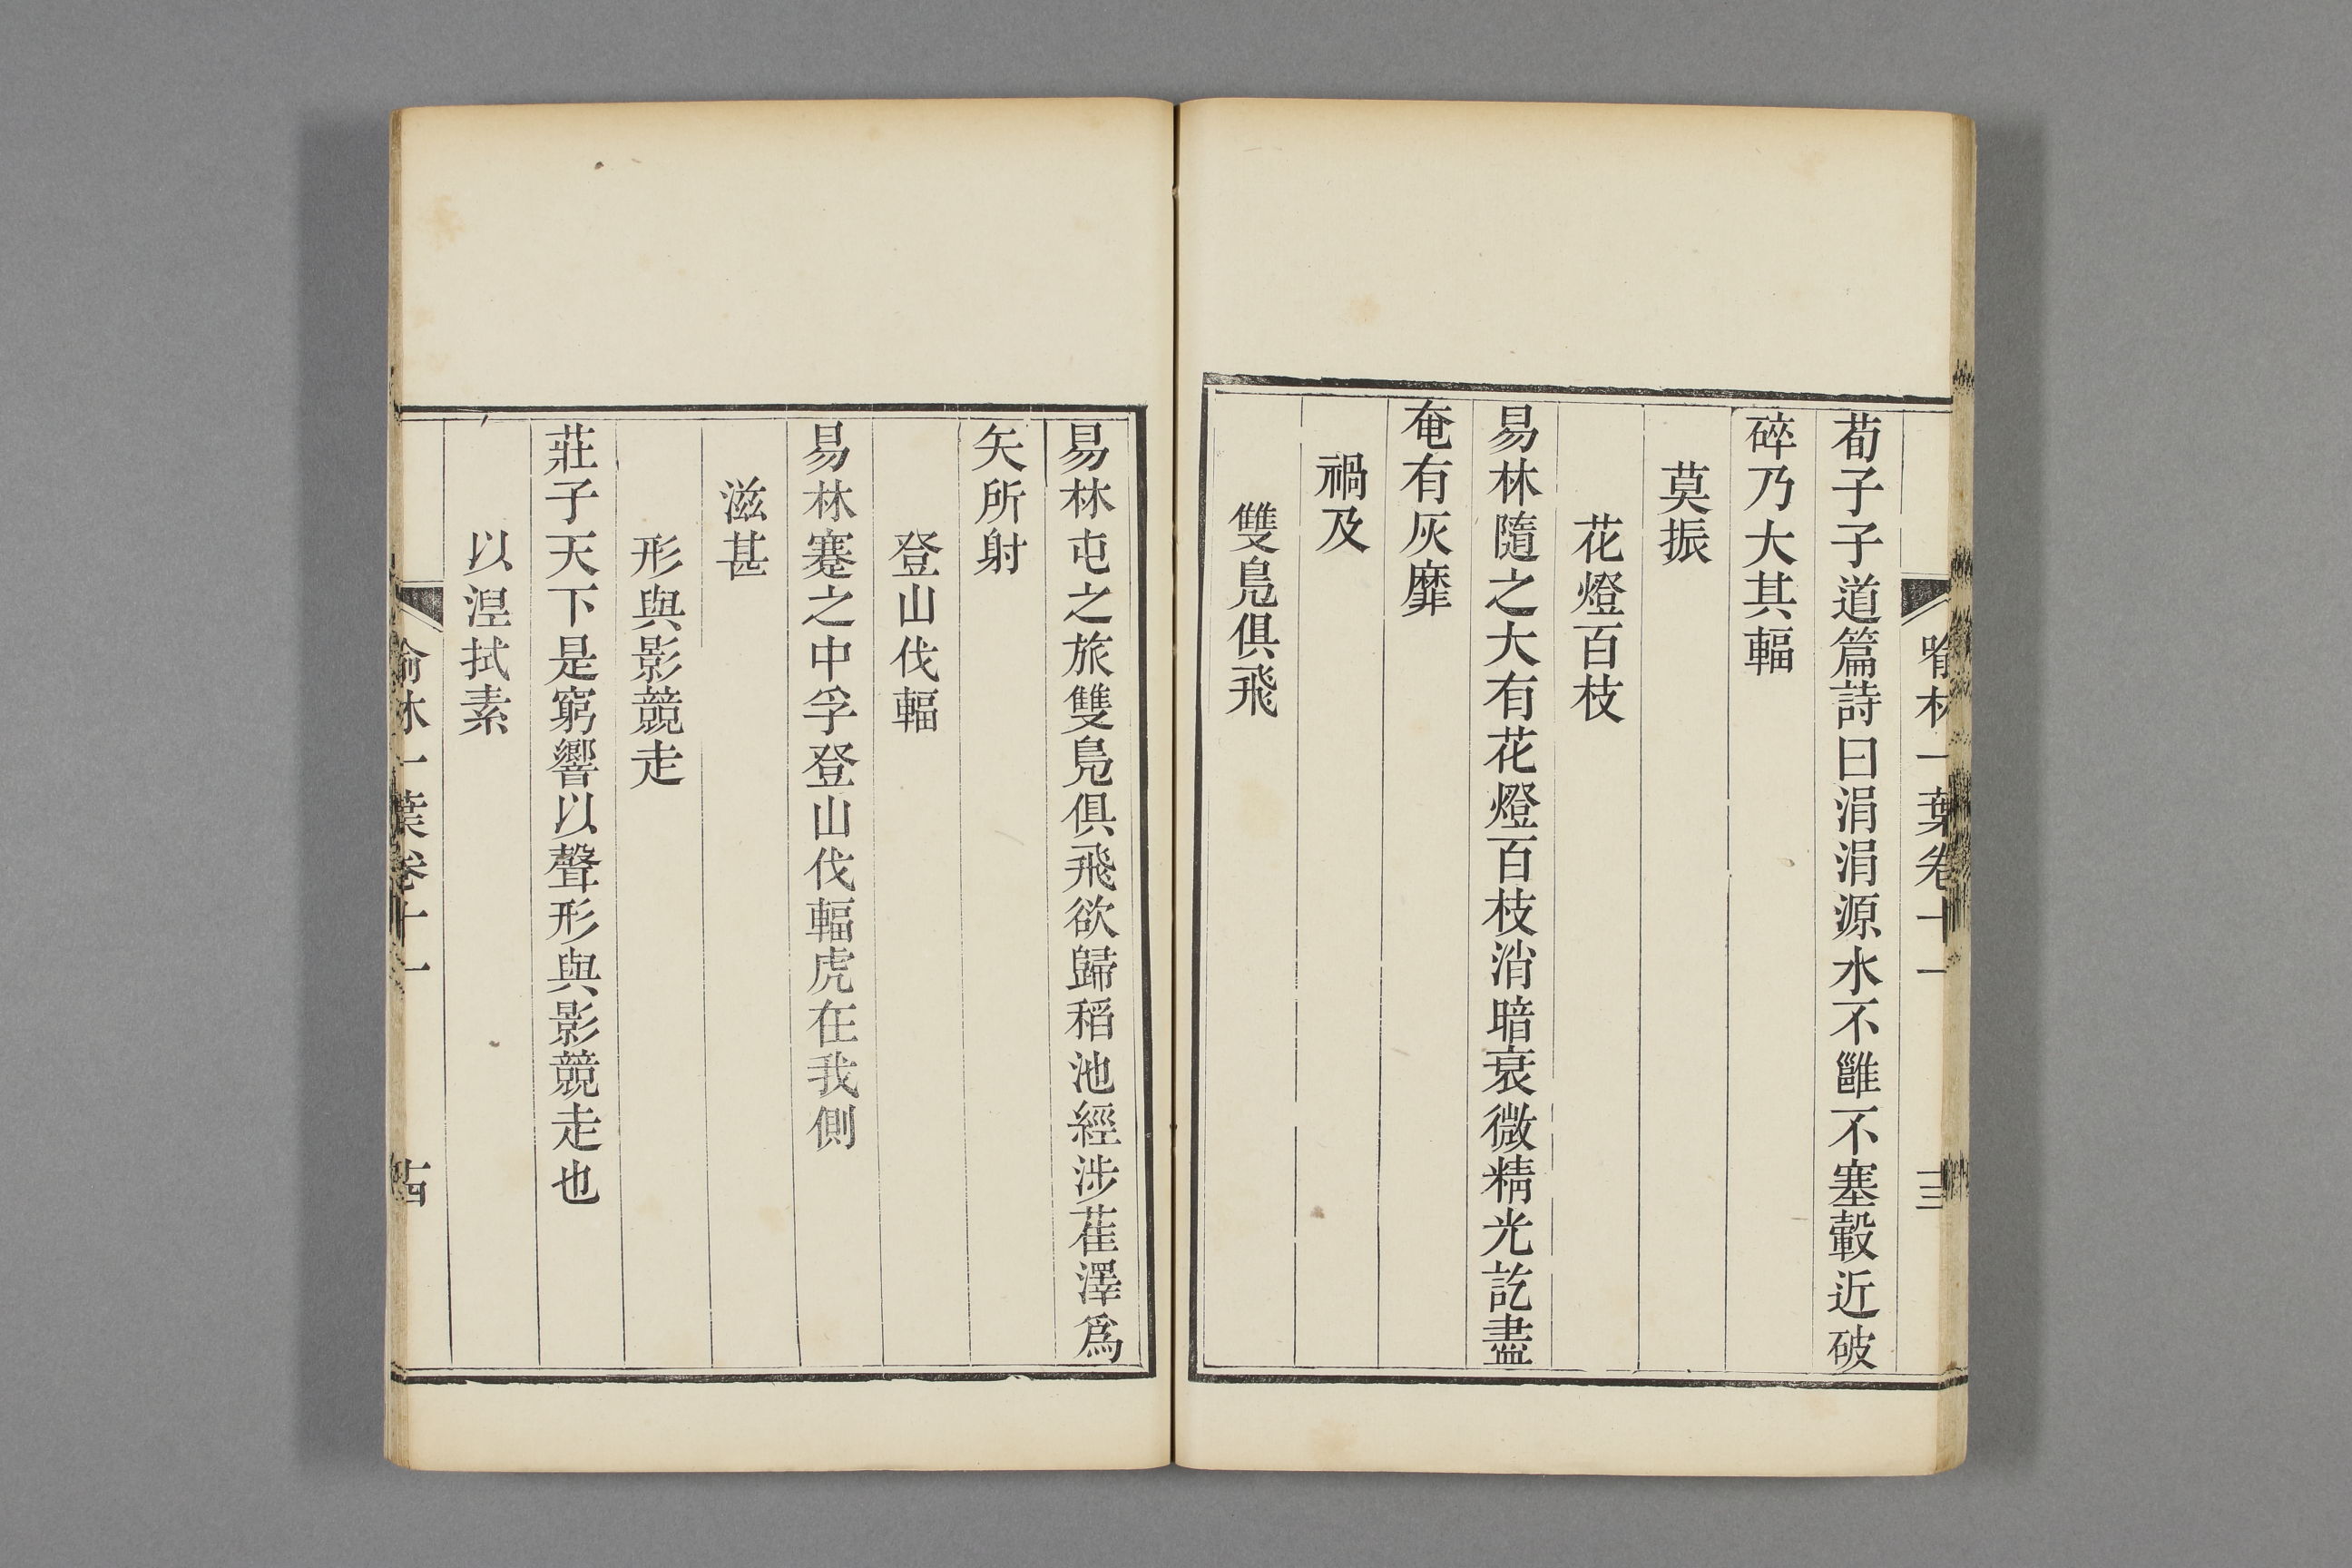 喻林一葉卷十一 十三
荀子子道篇詩曰涓涓源水不雝不塞轂近破
碎乃大其輻
莫振
花燈百枝
易林隨之大有花燈百枝消暗衰微精光訖盡
奄有灰靡
禍及
雙鳧俱飛
易林屯之旅雙鳧俱飛欲歸稻池經涉萑澤爲
矢所射
登山伐輻
易林蹇之中孚登山伐輻虎在我側
滋甚
形與影競走
莊子天下是窮響以聲形與影競走也
以湼拭素
喻林一葉卷十一 十四